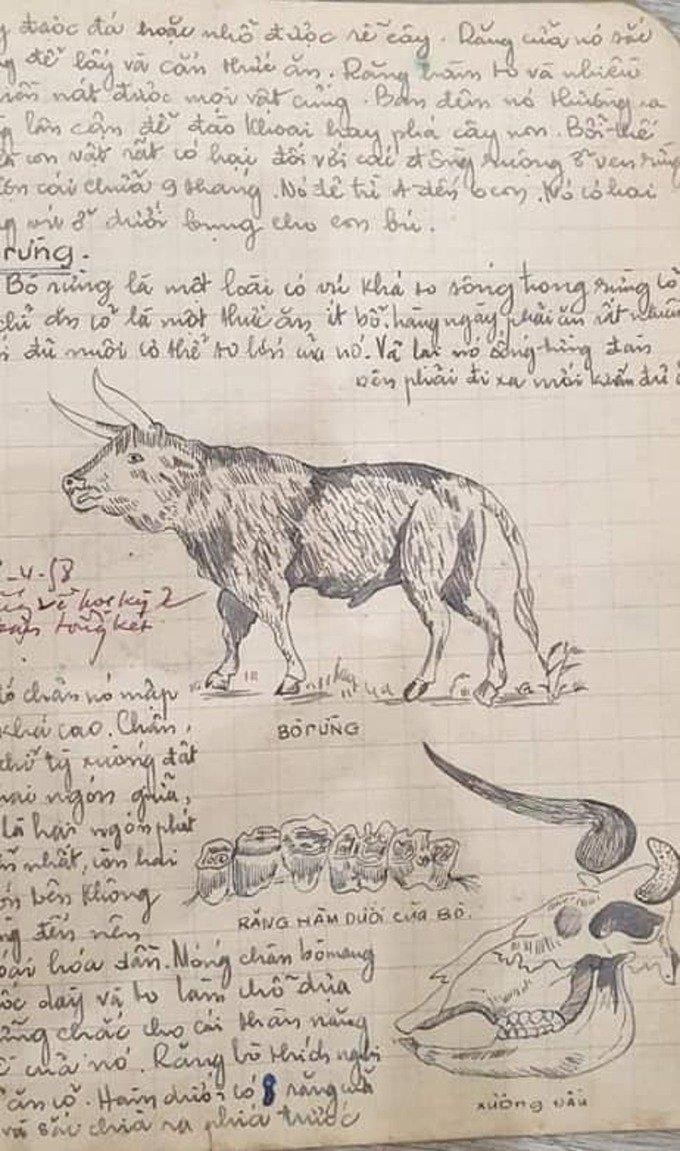 được đá hoặc nhổ được rễ cây. Răng cửa nó sắc
để lấy và cắn thức ăn. Răng hàm to và nhiều
nát được mọi vật cứng. Ban đêm nó thường ra
lân cận để đào khoai hay phá cây non. Bởi thế
con vật rất có hại đối với các đồng ruộng ở ven rừng
cái chửa 9 tháng. Nó đẻ từ 4 đến con. Nó có hai
vú ở dưới bụng cho con bú.
rừng.
Bò rừng là một loài có vú khá to sống trong rừng
chỉ ăn cỏ là một thức ăn ít bổ, hàng ngày phải ăn rất nhiều
đủ nuôi cơ thể to lớn của nó. Vả lại nó sống từng đàn
nên phải đi xa mới kiếm đủ
-4-58
về học kỳ 2
tổng kết
chân nó mập
khá cao. Chân,
chỉ tỳ xuống đất
hai ngón giữa,
là hai ngón phát
nhất, còn hai
bên không
đến nên
hóa dần. Móng chân bò mang
dày và to làm chỗ dựa
chắc cho cái thân nặng
của nó. Răng bò thích nghi
ăn cỏ. Hàm dưới có 8 răng cửa
và sắc chìa ra phía trước
BÒ RỪNG
RĂNG HÀM DƯỚI CỦA BÒ.
XƯƠNG ĐẦU